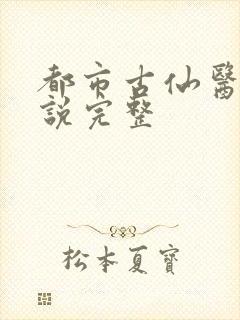 都市古仙醫
說完整
松本夏寶